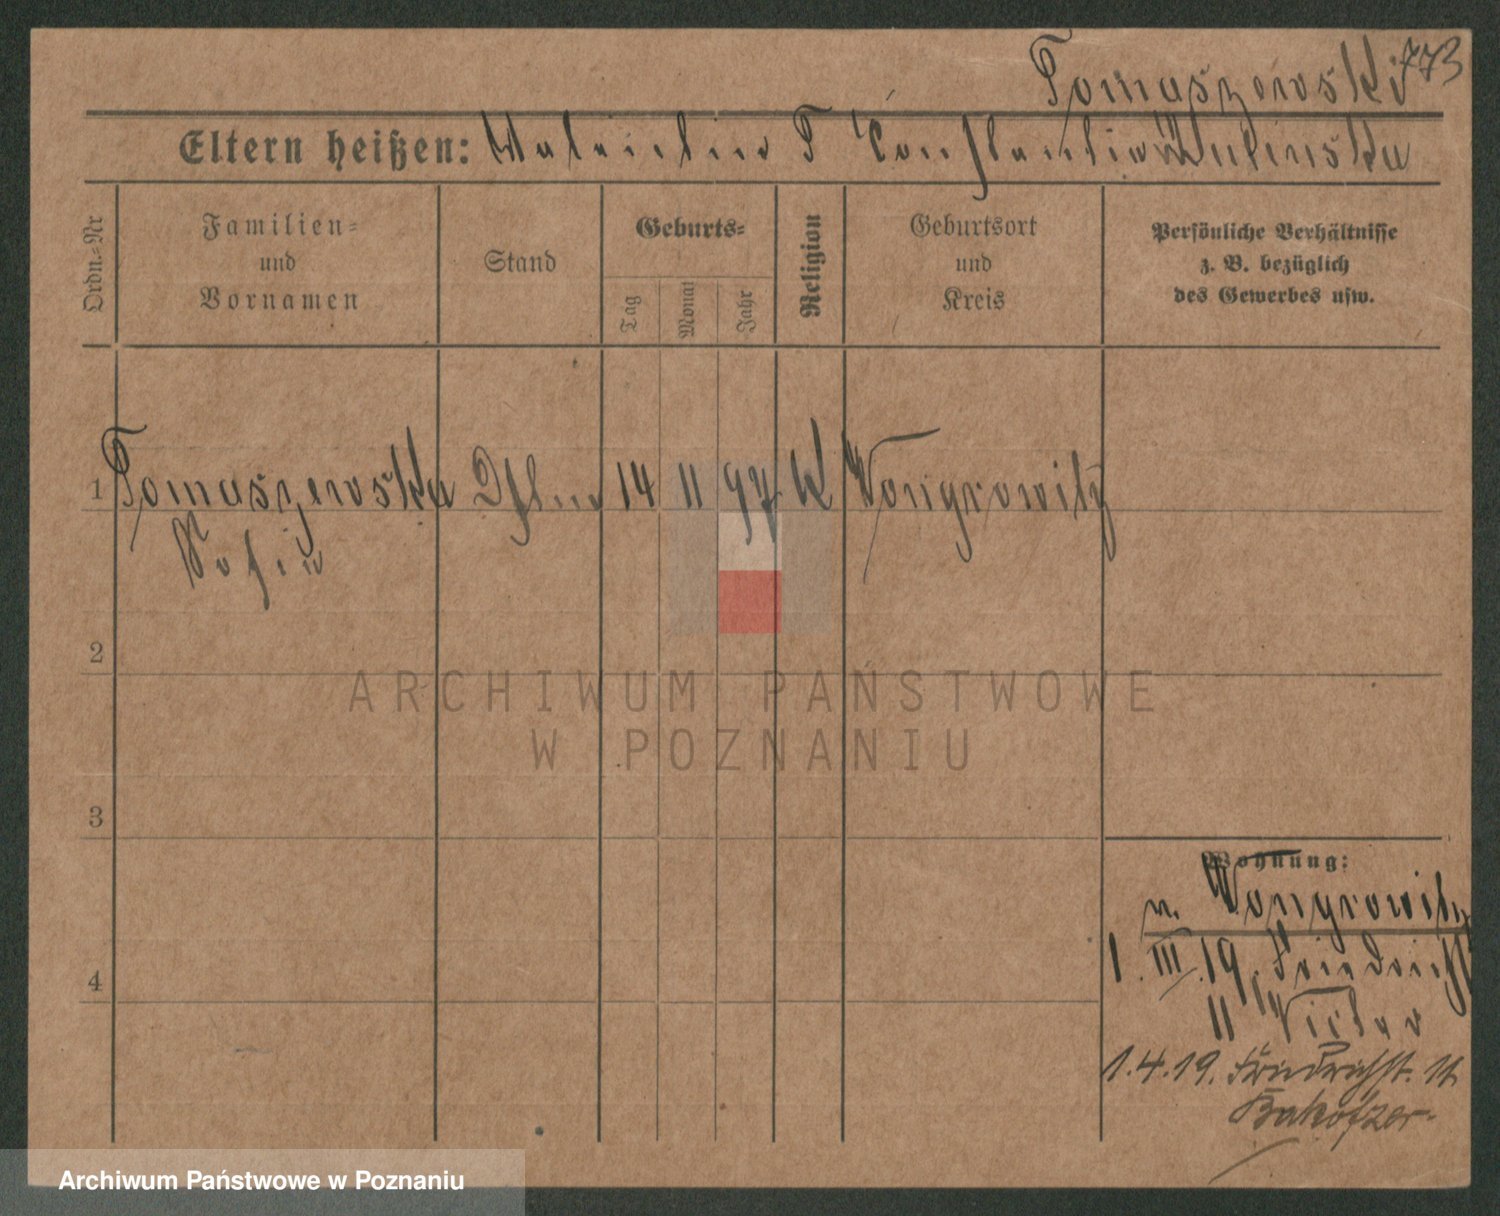 Tomaszewski 773
Eltern heißen: Valentin T Constantia Kulinska
Ordn.-Nr
Familien-
und
Vornamen
Stand
Geburts-
Tag
Monat
Jahr
Religion
Geburtsort
und
Kreis
Persönliche Verhältnisse
z. B. bezüglich
des Gewerbes usw.
1 Tomaszewska 14 11 97 K Wongrowitz
Sofia
2
3
4
Wohnung:
v. Wongrowitz
1. III. 19. Friedrichst
11
1.4.19. Friedrichst. 11
ARCHIWUM PAŃSTWOWE
W POZNANIU
Archiwum Państwowe w Poznaniu